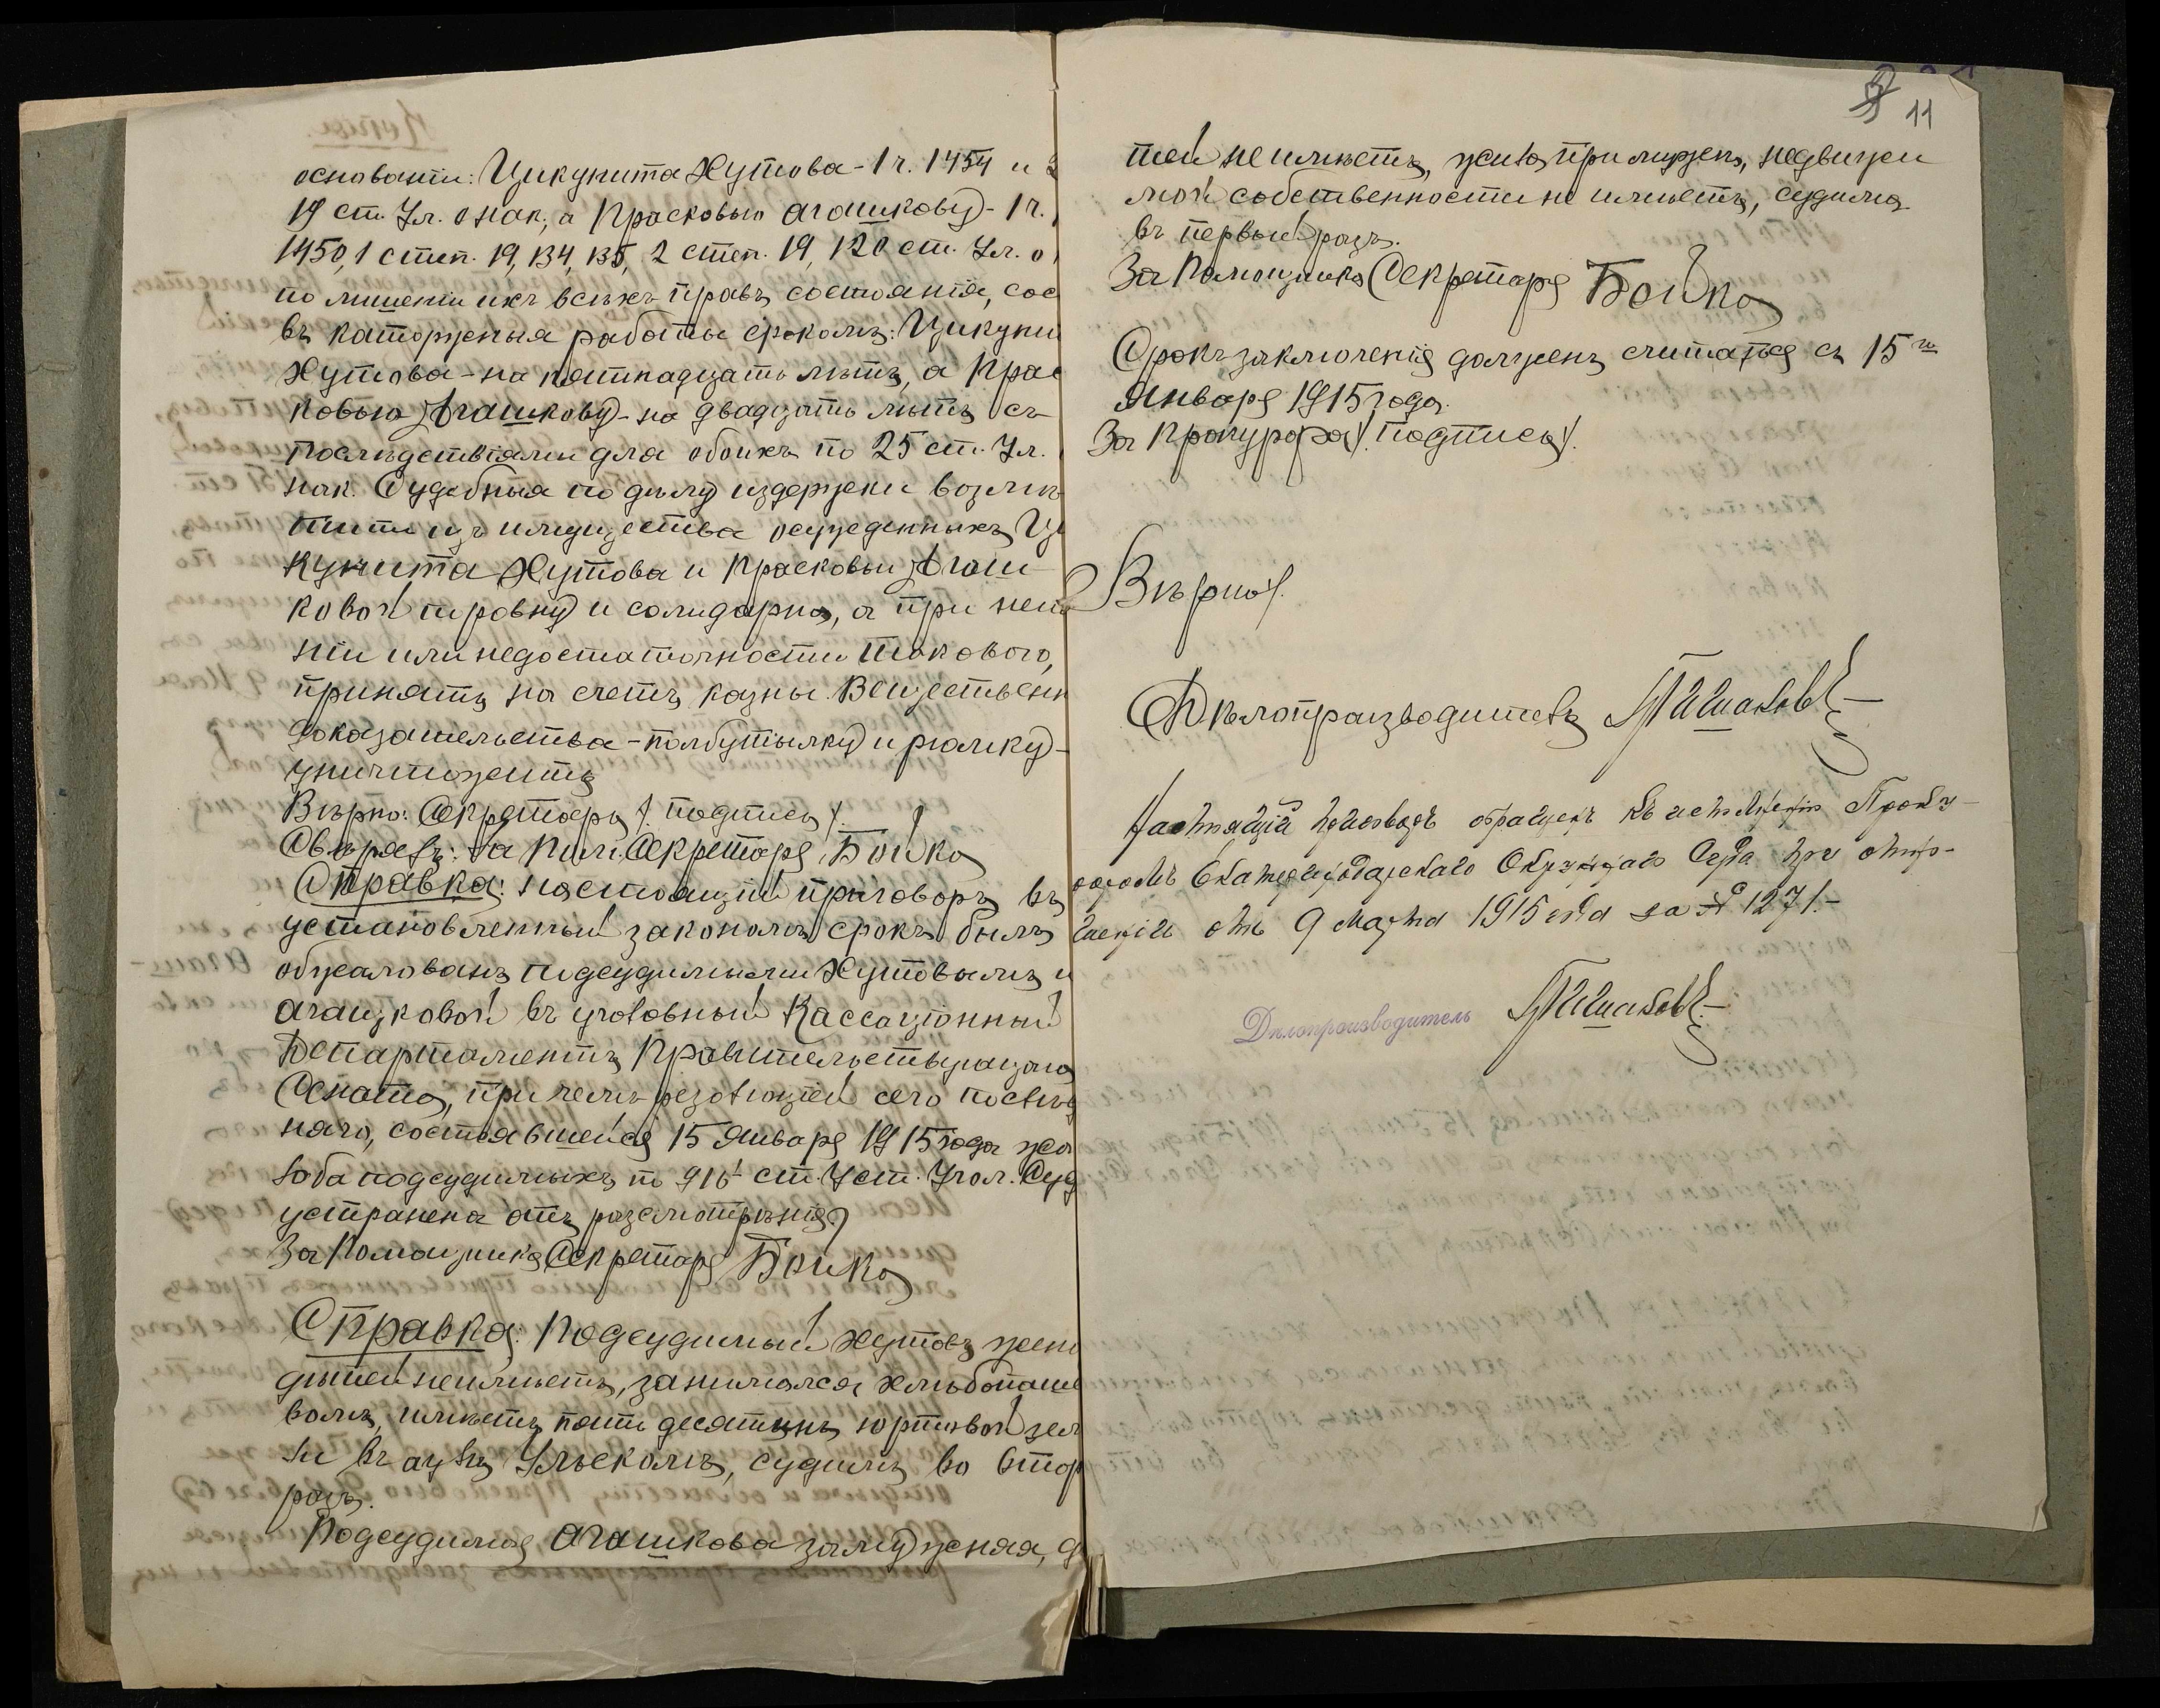 основаніи: Цикунита Хутова - 1 ч. 1454 и
19 ст. Ул. о нак., а Прасковью Агашкову - 1 ч.
1450, 1 степ. 19, 134, 135, 2 степ. 19, 120 ст. Ул. о
по лишеніи ихъ всѣхъ правъ состоянія, сос
въ каторжныя работы срокомъ: Цикуни
Хутова - на пятнадцать лѣтъ, а Прас
ковью Агашкову - на двадцать лѣтъ съ
послѣдствіями для обоихъ по 25 ст. Ул.
нак. Судебныя по дѣлу издержки возмѣ
стить изъ имущества осужденныхъ Ци
кунита Хутова и Прасковьи Агаш
ковой поровну и солидарно, а при неимѣ
ніи или недостаточности такового,
принять на счетъ казны. Вещественн
доказательства - полбутылку и рюмку -
уничтожить
Вѣрно: Секретарь /. подпись /.
Свѣрялъ: За Пом. Секретаря Бойко
Справка: настоящій приговоръ въ
установленный закономъ срокъ былъ
обжалованъ подсудимыми Хутовымъ и
Агашковой въ уголовный Кассаціонный
Департаментъ Правительствующаго
Сената, при чемъ резолюціей сего послѣд
няго, состоявшейся 15 Января 1915 года жа
лоба подсудимыхъ по 910¹ ст. Уст. Угол. Суд
устранена отъ разсмотрѣнія
За Помощника Секретаря Бойко
Справка: Подсудимый Хутовъ жен
дѣтей неимѣетъ, занимался хлѣбопаше
вомъ, имѣетъ пять десятинъ юртовой зем
ли въ аулѣ Ульскомъ, судимъ во втор
разъ.
Подсудимая Агашкова замужняя, д
11
тей не имѣетъ, жила при мужѣ, недвижи
мой собственности не имѣетъ, судима
въ первый разъ.
За Помощника Секретаря Бойко
Срокъ заключенія долженъ считаться съ 15го
Января 1915 года.
За Прокурора /. подпись /.
Вѣрно:
Дѣлопроизводитель
Настоящій приговоръ обращенъ къ исполненію Проку-
роромъ Екатеринодарскаго Окружнаго Суда при отно-
шеніи отъ 9 Марта 1915 года за № 1271.-
Дѣлопроизводитель